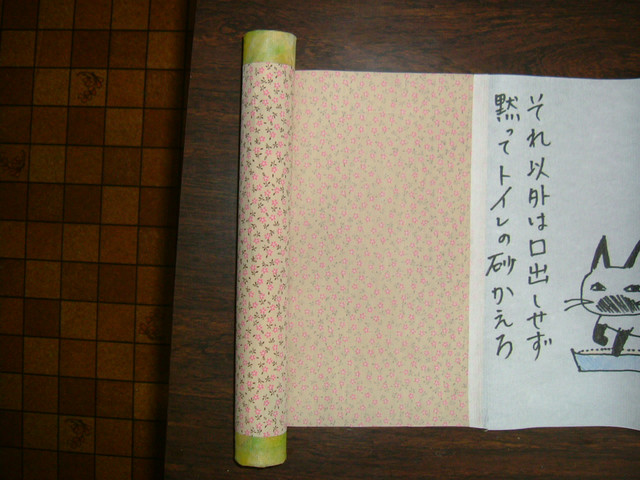 それ以外は口出しせず
黙ってトイレの砂かえろ